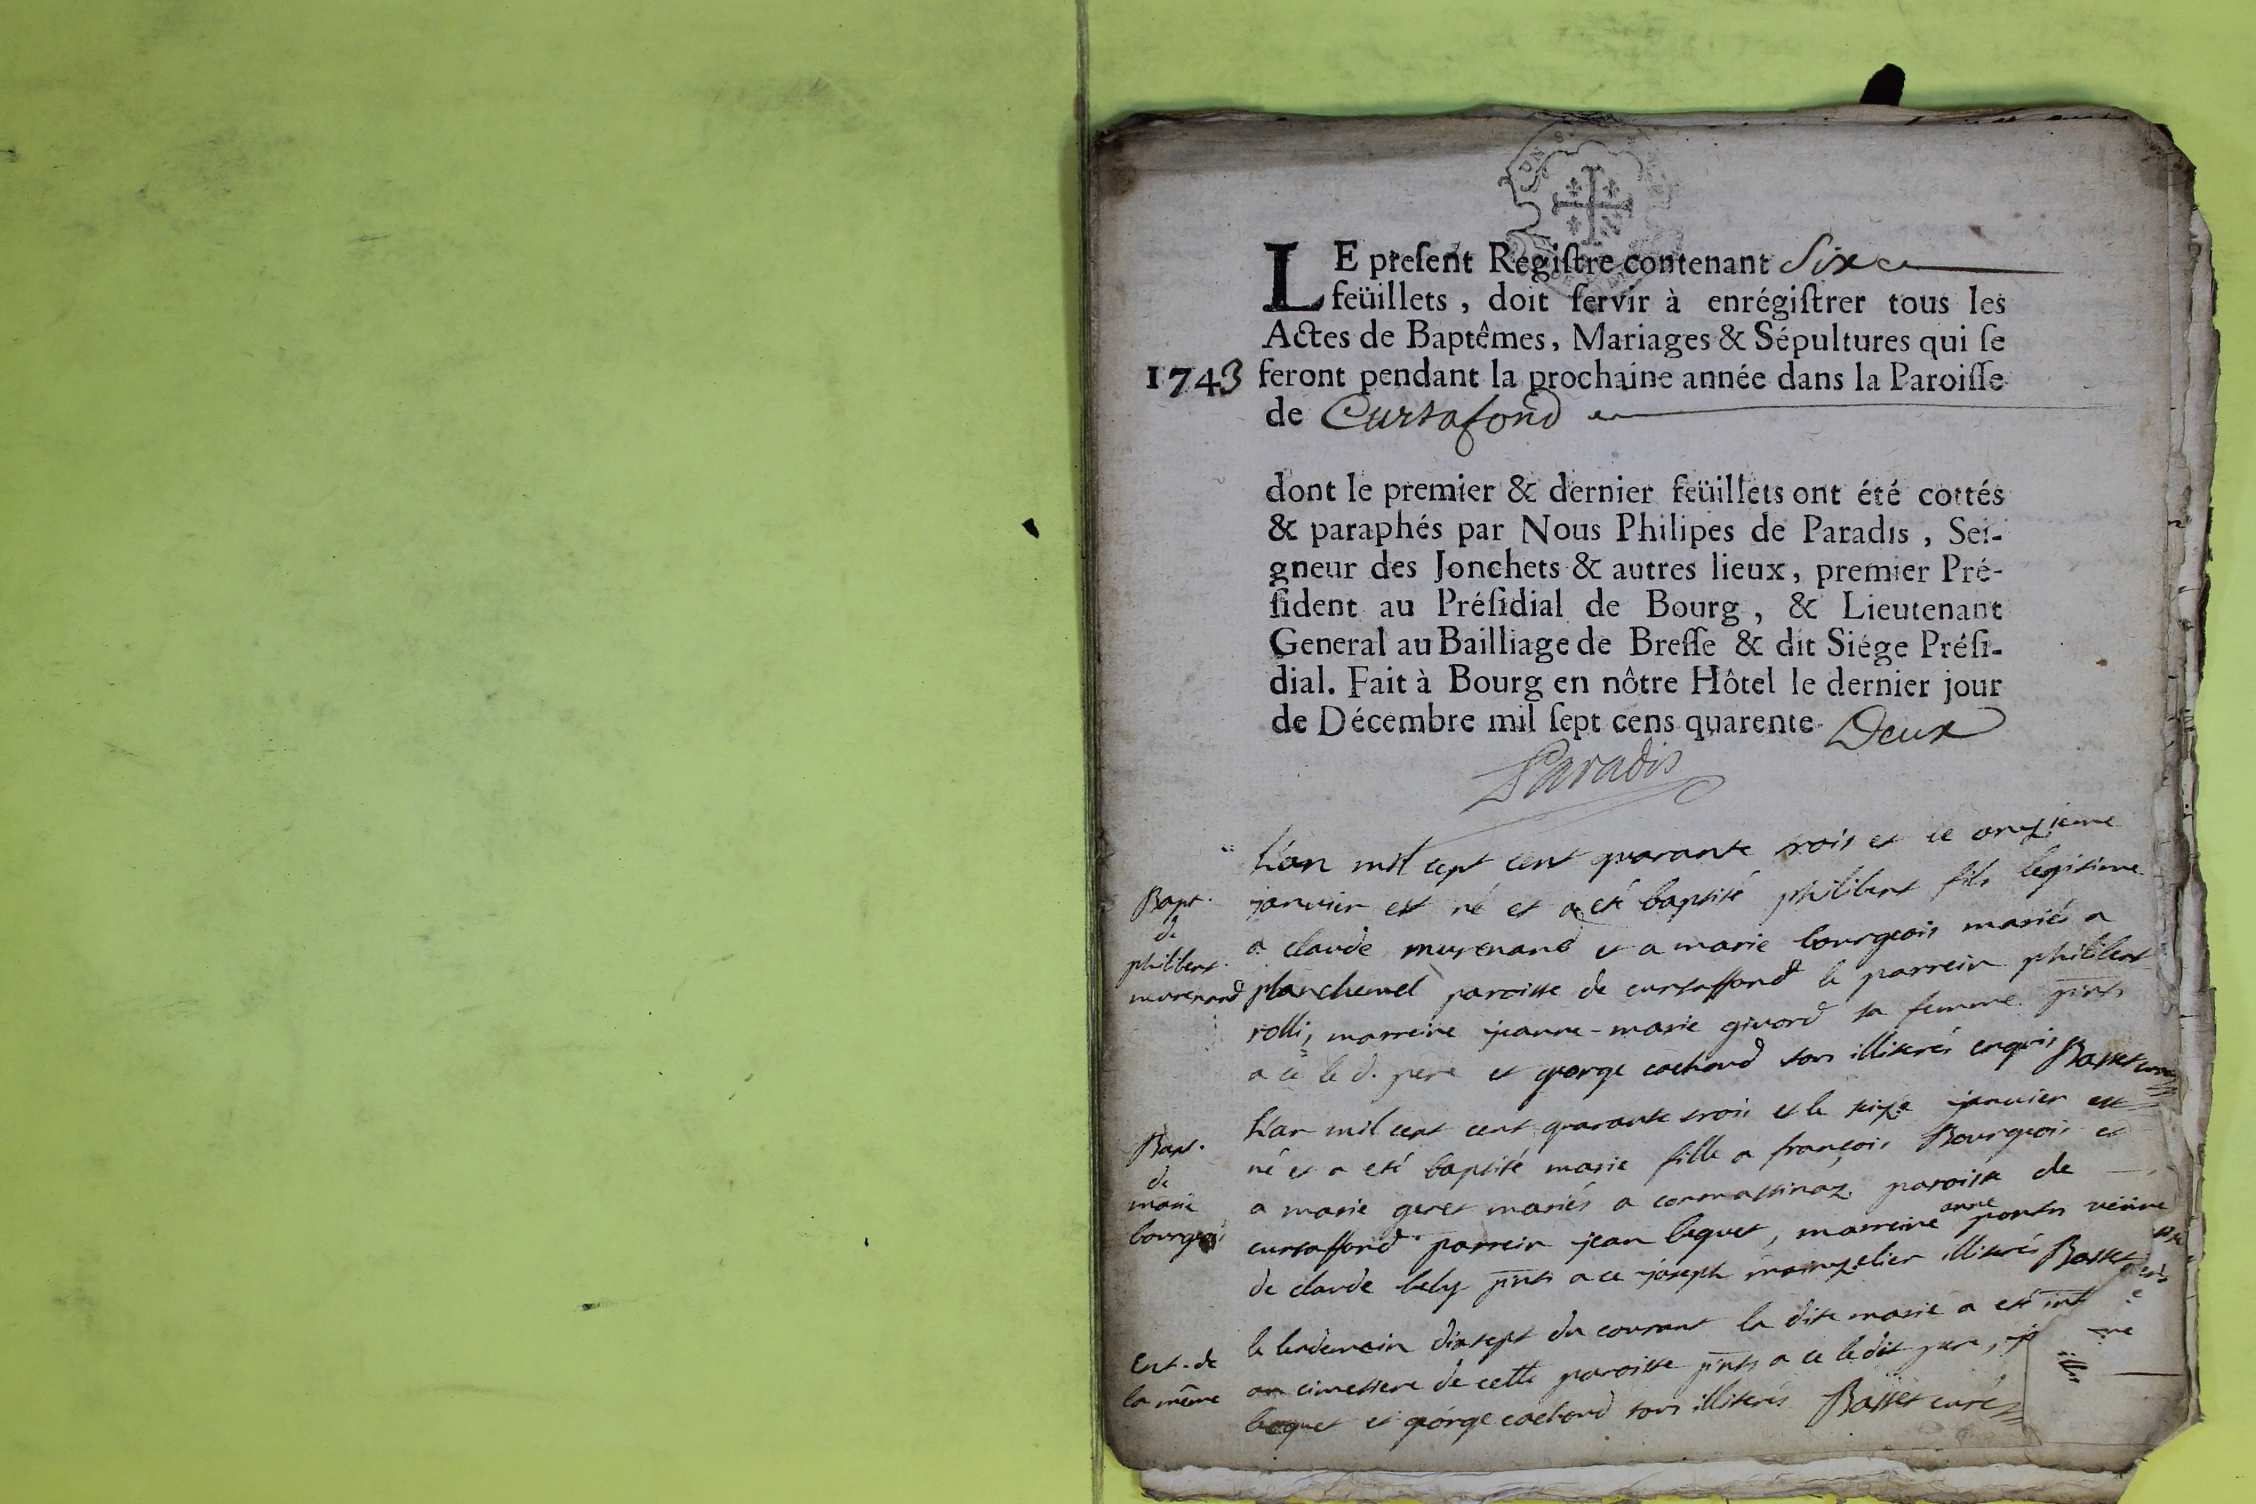 LE preſent Régiſtre contenant Six
feüillets, doit ſervir à enrégiſtrer tous les
Actes de Baptêmes, Mariages & Sépultures qui ſe
1743 feront pendant la prochaine année dans la Paroiſſe
de Curtafond
dont le premier & dernier feüillets ont été cottés
& paraphés par Nous Philipes de Paradis, Sei-
gneur des Jonchets & autres lieux, premier Pré-
ſident au Préſidial de Bourg, & Lieutenant
General au Bailliage de Breſſe & dit Siége Préſi-
dial. Fait à Bourg en nôtre Hôtel le dernier jour
de Décembre mil ſept cens quarente Deux
Paradis
Bapt.
de
philibert
murenand
L'an mil cept cent quarante trois et le onzieme
janvier est né et a eté baptisé philibert fils legitime
a claude murenand et a marie bourgeois mariés a
planchemel paroisse de curtaffond le parrein philibert
rolli, marreine jeanne-marie givord sa femme pnts
a ce le d. pere et george cochard tous illiterés enquis Basset curé
Bapt.
de
marie
bourgeois
L'an mil cept cent quarante trois et le seize janvier est
né et a eté baptisé marie fille a françois Bourgeois et
a marie geret mariés a cormassinaz paroisse de
curtaffond parrein jean bequet, marreine anne ponsts veuve
de claude bely pnts a ce joseph illiterés Basset
Ent. de
la même
le lendemain dixsept du courant la dite marie a eté
au cimetiere de cette paroisse pnts a ce le dit pere,
bequet et george cochard tous illiterés Basset curé